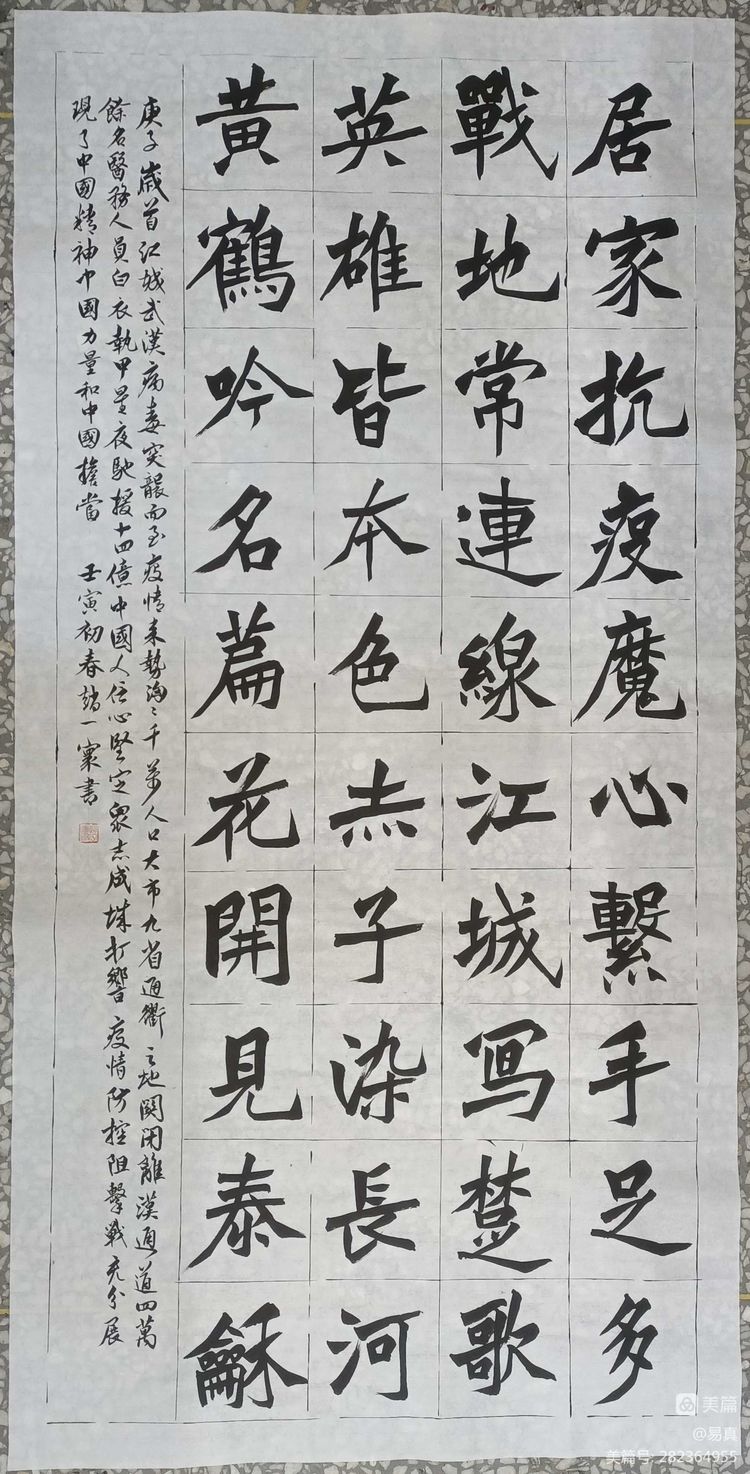 居家抗疫魔心繫手足多
戰地常連線江城寫楚歌
英雄皆本色赤子染長河
黃鶴吟名篇花開見泰龢
庚子歲首江城武漢病毒突襲而至疫情來勢洶〻千萬人口大市九省通衢之地關閉離漢通道四萬
餘名醫務人員白衣執甲星夜馳援十四億中國人信心堅定眾志成城打響疫情防控阻擊戰充分展
現了中國精神中國力量和中國擔當 壬寅初春 一 書
美篇
@易真
美篇号: 282364955